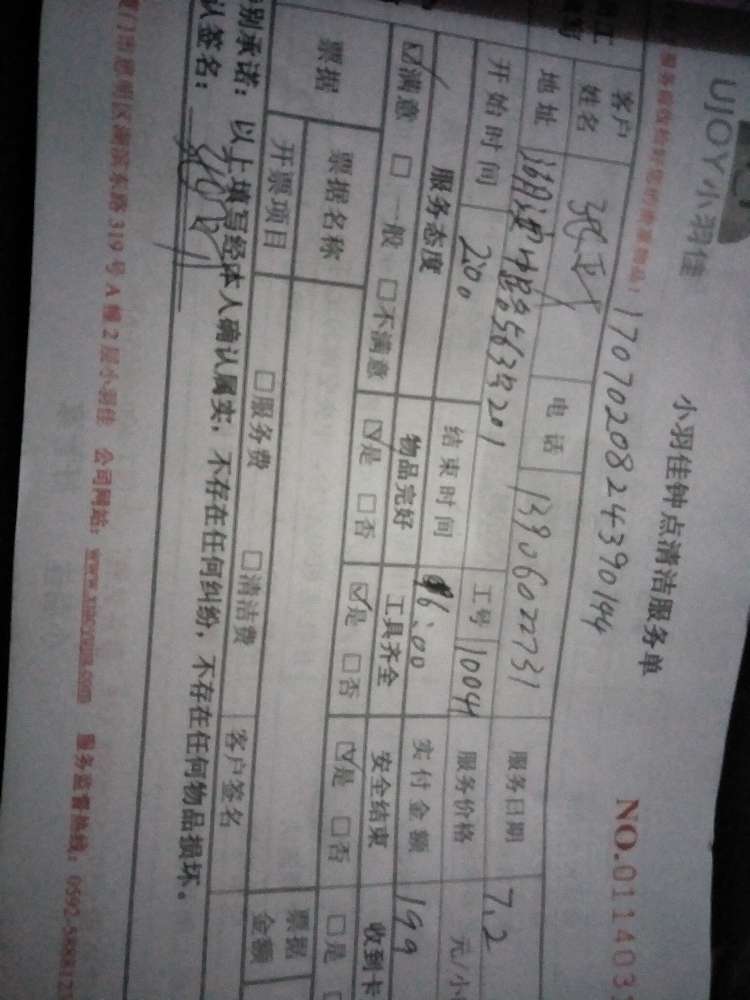 UJOY小羽佳
小羽佳钟点清洁服务单
NO.011403
1707020824390144
客户姓名
电话 13906022731
服务日期 7.2
地址 563号201
工号 10041
服务价格 元/小
开始时间 2:00
结束时间 6:00
实付金额 199
服务态度 物品完好 工具齐全 安全结束 收到卡
☑满意 □一般 □不满意 ☑是 □否 ☑是 □否 ☑是 □否 □是
票据 票据名称 票据金额
开票项目 □服务费 □清洁费 客户签名
别承诺：以上填写经本人确认属实，不存在任何纠纷，不存在任何物品损坏。
认签名：
厦门市思明区湖滨东路319号A幢2层小羽佳 公司网站： 服务监督热线：0592-